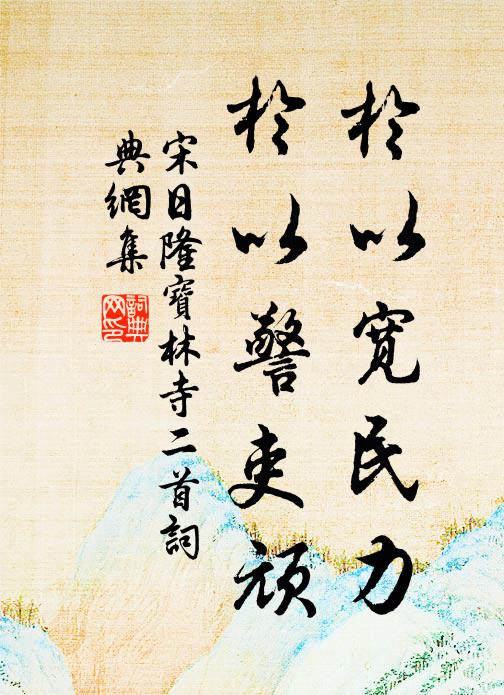 於以寬民力
於以警吏頑
宋日隆寶林寺二首詞
典網集
詞典
網印